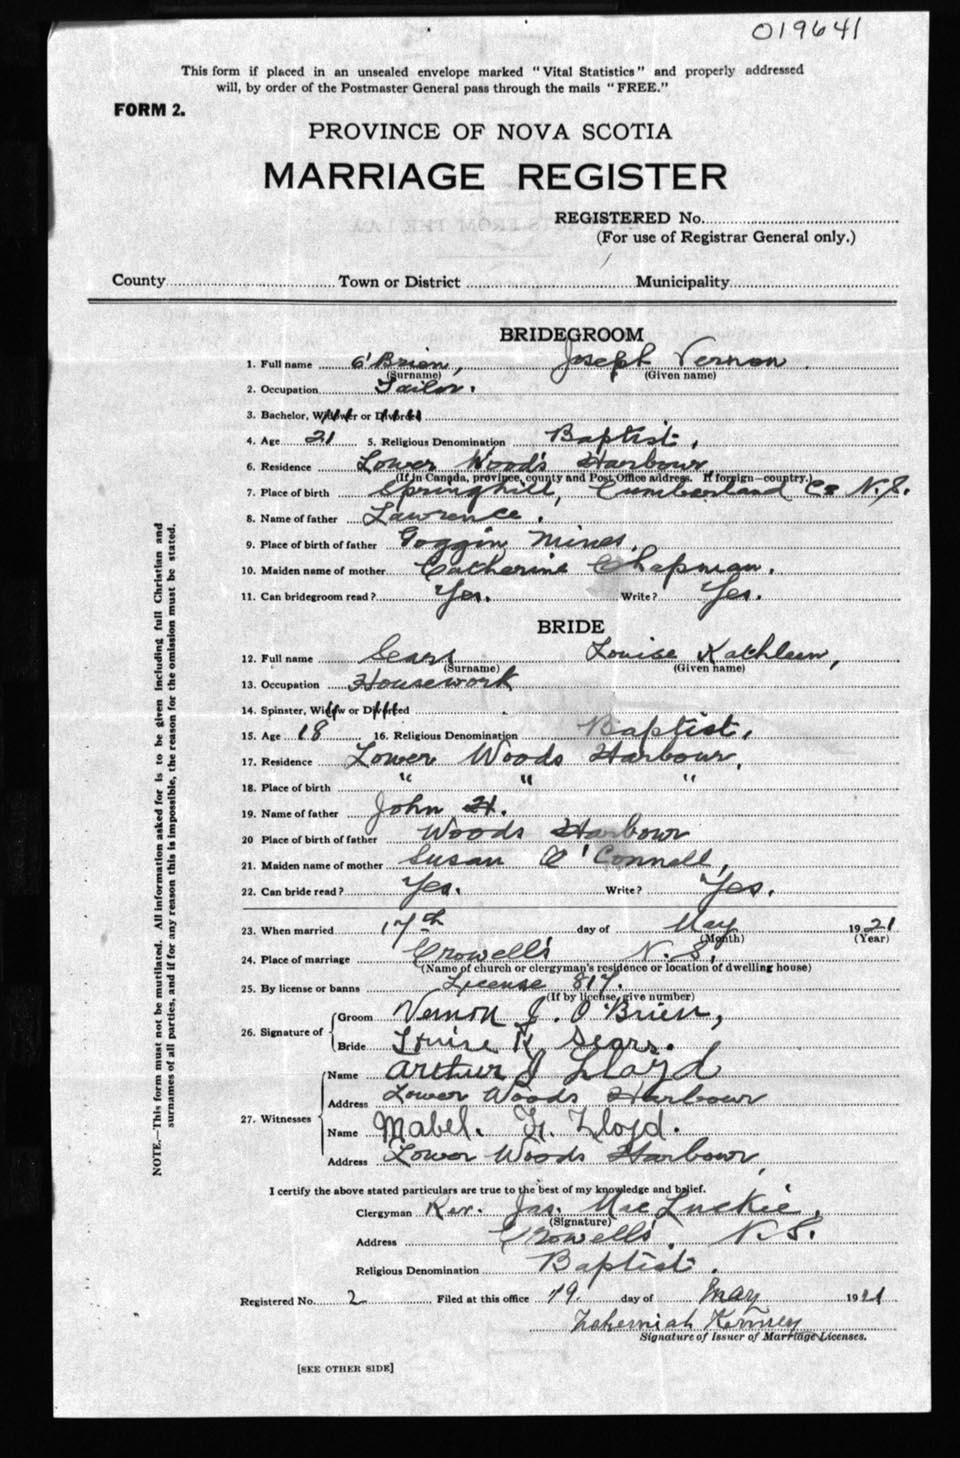 019641
This form if placed in an unsealed envelope marked "Vital Statistics" and properly addressed
will, by order of the Postmaster General pass through the mails "FREE."
FORM 2.
PROVINCE OF NOVA SCOTIA
MARRIAGE REGISTER
REGISTERED No.
(For use of Registrar General only.)
County Town or District Municipality
BRIDEGROOM
1. Full name O'Brien, Joseph Vernon.
(Surname) (Given name)
2. Occupation Tailor.
3. Bachelor, Widower or Divorced
4. Age 21 5. Religious Denomination Baptist,
6. Residence Lower Woods Harbour,
(If in Canada, province, county and Post Office address. If foreign—country.)
7. Place of birth Springhill, Cumberland Co N.S.
8. Name of father Lawrence.
9. Place of birth of father Goggin Mines,
10. Maiden name of mother Catherine Chapman.
11. Can bridegroom read? Yes. Write? Yes.
BRIDE
12. Full name Sears Louise Kathleen,
(Surname) (Given name)
13. Occupation Housework
14. Spinster, Widow or Divorced
15. Age 18 16. Religious Denomination Baptist,
17. Residence Lower Woods Harbour,
18. Place of birth " " "
19. Name of father John H.
20 Place of birth of father Woods Harbour
21. Maiden name of mother Susan O'Connell,
22. Can bride read? Yes. Write? Yes.
23. When married 17th day of May 1921
(Month) (Year)
24. Place of marriage Crowell's N.S,
(Name of church or clergyman's residence or location of dwelling house)
25. By license or banns License 817.
(If by license, give number)
26. Signature of Groom Vernon J. O'Brien,
Bride Louise K. Sears.
27. Witnesses Name Arthur J Lloyd
Address Lower Woods Harbour
Name Mabel. G. Lloyd.
Address Lower Woods Harbour,
I certify the above stated particulars are true to the best of my knowledge and belief.
Clergyman Rev. Jas. MacLuckie,
(Signature)
Address Crowells, N.S.
Religious Denomination Baptist.
Registered No. 2 Filed at this office 19. day of May 1921
Nehemiah Kenney
Signature of Issuer of Marriage Licenses.
[SEE OTHER SIDE]
NOTE.—This form must not be mutilated. All information asked for is to be given including full Christian and
surnames of all parties, and if for any reason this is impossible, the reason for the omission must be stated.